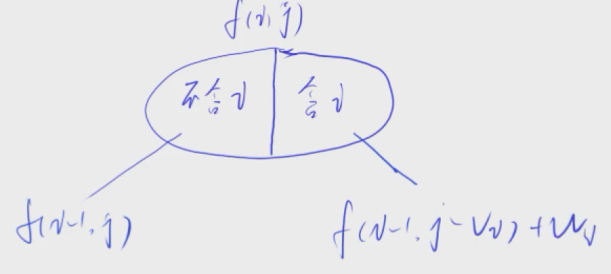 f(i, j)
不含i 含i
f(i-1, j) f(i-1, j-vi)+wi